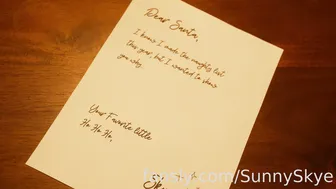 Dear Santa,
I know I made the naughty list
this year, but I wanted to show
you why.
Your Favorite little
Ho Ho Ho,
.com/SunnySkye